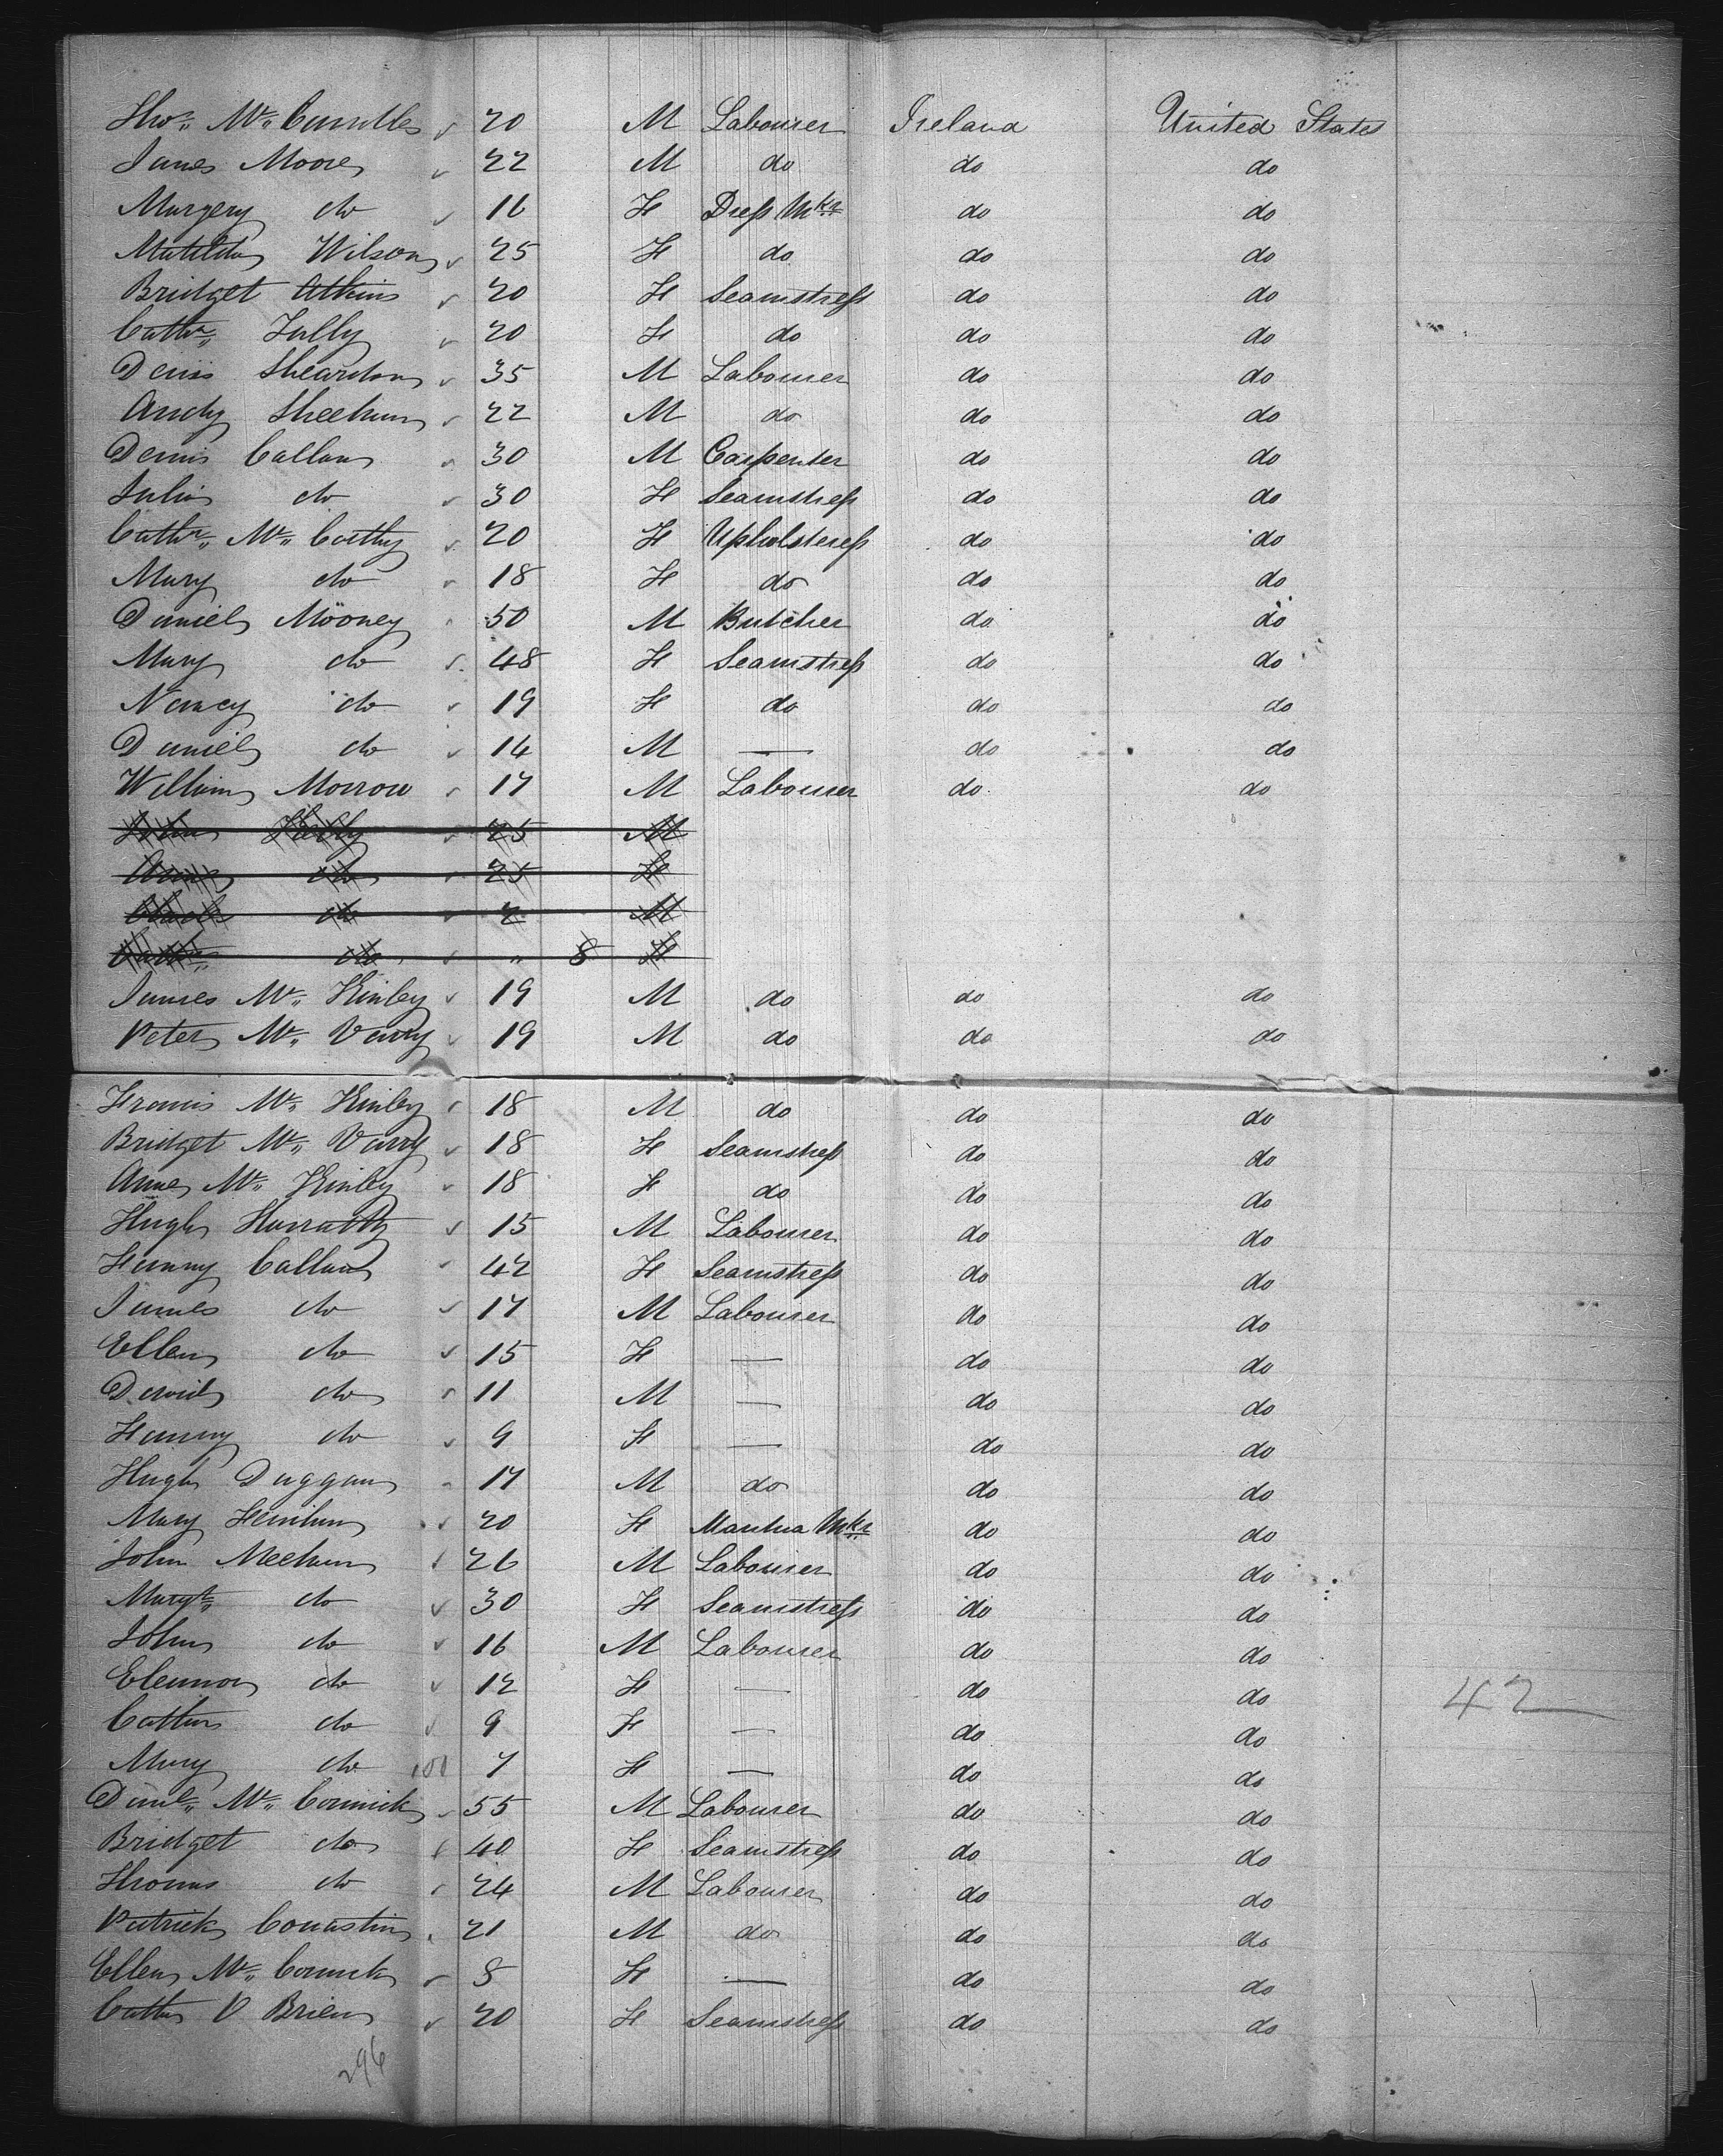 Tho.. Mc.. Cumilles 20 M Labourer Ireland United States
James Moore 22 M do do do
Margery do 16 F Dress Mkr do do
Matilda Wilson 25 F do do do
Bridget Atkins 20 F Seamstress do do
Cathr.. Tully 20 F do do do
Denis Sheardon 35 M Labourer do do
Andy Sheehan 22 M do do do
Dennis Callan 30 M Carpenter do do
Julia do 30 F Seamstress do do
Cathr.. Mc.. Carthy 20 F Upholsteress do do
Mary do 18 F do do do
Daniel Mooney 50 M Butcher do do
Mary do 48 F Seamstress do do
Nancy do 19 F do do do
Daniel do 14 M — do do
William Morrow 17 M Labourer do do
John Kelly 25 M
Anne do 25 F
do 2 M
do " 8 F
James Mc.. Kinley 19 M do do do
Peter Mc.. Varry 19 M do do do
Francis Mc.. Kinley 18 M do do do
Bridget Mc.. Varry 18 F Seamstress do do
Anne Mc.. Kinley 18 F do do do
Hugh Harratty 15 M Labourer do do
Hanny Callan 42 F Seamstress do do
James do 17 M Labourer do do
Ellen do 15 F — do do
David do 11 M — do do
Hanny do 9 F — do do
Hugh Duggan 17 M do do do
Mary Heniham 20 F Mantua Mkr do do
John Meehan 26 M Labourer do do
Margt.. do 30 F Seamstress do do
John do 16 M Labourer do do
Eleanor do 12 F — do do 42
Cathrn do 9 F — do do
Mary do 100 7 F — do do
Danl.. Mc.. Cormick 55 M Labourer do do
Bridget do 40 F Seamstress do do
Thomas do 24 M Labourer do do
Patrick Conastin 21 M do do do
Ellen Mc.. Cormick 8 F — do do
Cathn O Brien 20 F Seamstress do do
296